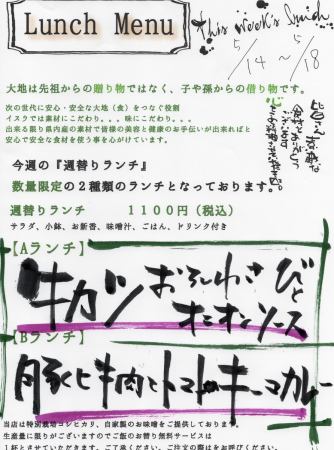 Lunch Menu
This week's lunch
5/14〜5/18
大地は先祖からの贈り物ではなく、子や孫からの借り物です。
次の世代に安心・安全な大地（食）をつなぐ役割
イスクラでは素材にこだわり。。。味にこだわり。。。
出来る限り県内産の素材で皆様の美容と健康のお手伝いが出来ればと
安心で安全な食材を使う事を心がけています。
今週の『週替りランチ』
数量限定の２種類のランチとなっております。
週替りランチ　１１００円（税込）
サラダ、小鉢、お新香、味噌汁、ごはん、ドリンク付き
【Aランチ】
牛カツ おろしわさびと
オニオンソース
【Bランチ】
豚ヒと牛肉とトマトのキーマカレー
当店は特別栽培コシヒカリ、自家製のお味噌をご提供しております。
生産量に限りがございますのでご飯のお替り無料サービスは
１杯とさせていただきます。ご了承ください。ご注文の際はをお呼びください。